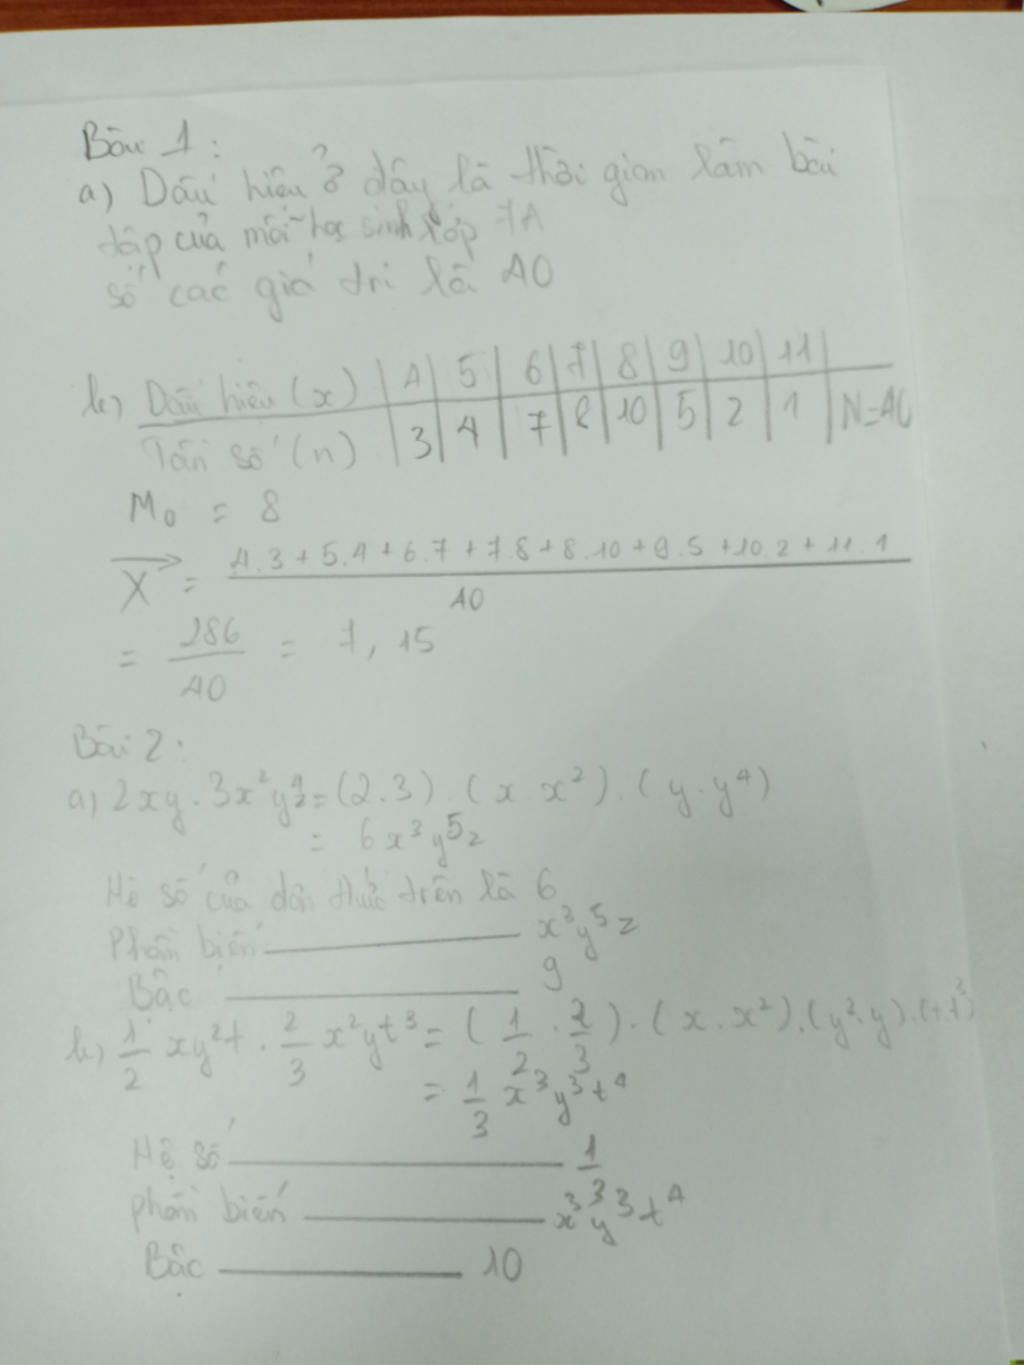 Bài 1:
a) Dấu hiệu ở đây là thời gian làm bài
tập của mỗi học sinh lớp 7A
số các giá trị là 40
b) Dấu hiệu (x) | 4 | 5 | 6 | 7 | 8 | 9 | 10 | 11 |
Tần số (n) | 3 | 4 | 7 | 8 | 10 | 5 | 2 | 1 | N=40
M₀ = 8
X = 4.3+5.4+6.7+7.8+8.10+9.5+10.2+11.1 / 40
= 286/40 = 7,15
Bài 2:
a) 2xy.3x²y⁴z = (2.3).(x.x²).(y.y⁴)
= 6x³y⁵z
Hệ số của đơn thức trên là 6
Phần biến ——— x³y⁵z
Bậc ——— 9
b) 1/2 xy²t . 2/3 x²yt³ = (1/2 . 2/3).(x.x²).(y².y).(t.t³)
= 1/3 x³y³t⁴
Hệ số ——— 1/3
phần biến ——— x³y³t⁴
Bậc ——— 10